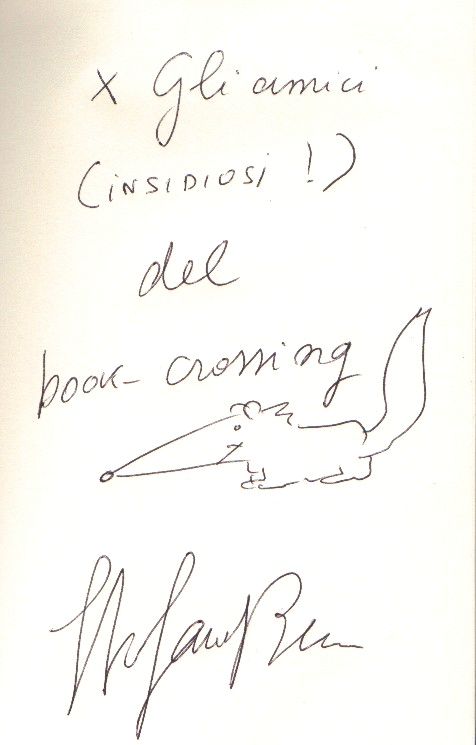 x Gli amici
(iNSIDIOSi !)
del
book-crossing
Stefano Benni